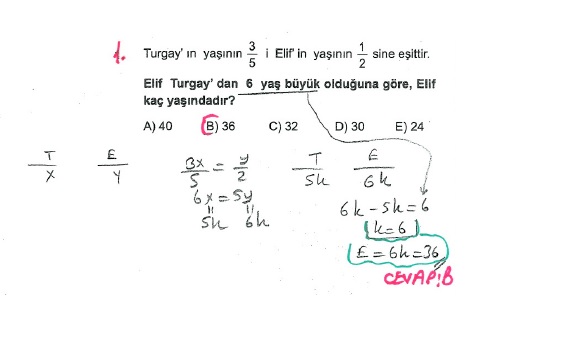 1. Turgay' ın yaşının 3/5 i Elif' in yaşının 1/2 sine eşittir.
Elif Turgay' dan 6 yaş büyük olduğuna göre, Elif
kaç yaşındadır?
A) 40 B) 36 C) 32 D) 30 E) 24
T E
x y
3x/5 = y/2
6x = 5y
5k 6k
T E
5k 6k
6k - 5k = 6
k = 6
E = 6k = 36
CEVAP: B